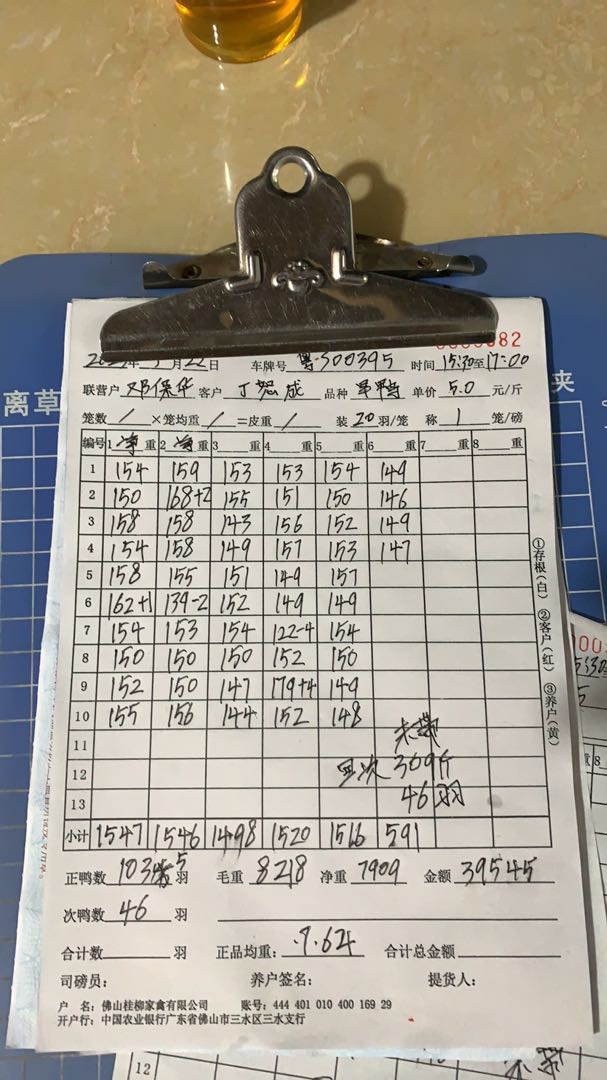 22日 车牌号 粤S00395 时间 15:30至17:00
联营户 邓保华 客户 品种 单价 5.0 元/斤
笼数 / ×笼均重 / =皮重 / 装 20 羽/笼 称 1 笼/磅
编号 1 净 重 2 净 重 3 重 4 重 5 重 6 重 7 重 8 重
1 154 159 153 153 154 149
2 150 168+2 155 151 150 146
3 158 158 143 156 152 149
4 154 158 149 157 153 147
5 158 155 151 149 157
6 162+1 139-2 152 149 149
7 154 153 154 122-4 154
8 150 150 150 152 150
9 152 150 147 179+4 149
10 155 156 144 152 148
11
12 309斤
13 46羽
小计 1547 1546 1498 1520 1516 591
正鸭数 1035 羽 毛重 8218 净重 7909 金额 39545
次鸭数 46 羽
合计数 羽 正品均重: 7.64 合计总金额
司磅员: 养户签名: 提货人:
户 名: 佛山桂柳家禽有限公司 账号: 444 401 010 400 169 29
开户行: 中国农业银行广东省佛山市三水区三水支行
①存根(白) ②客户(红) ③养户(黄)
离草
夹
12